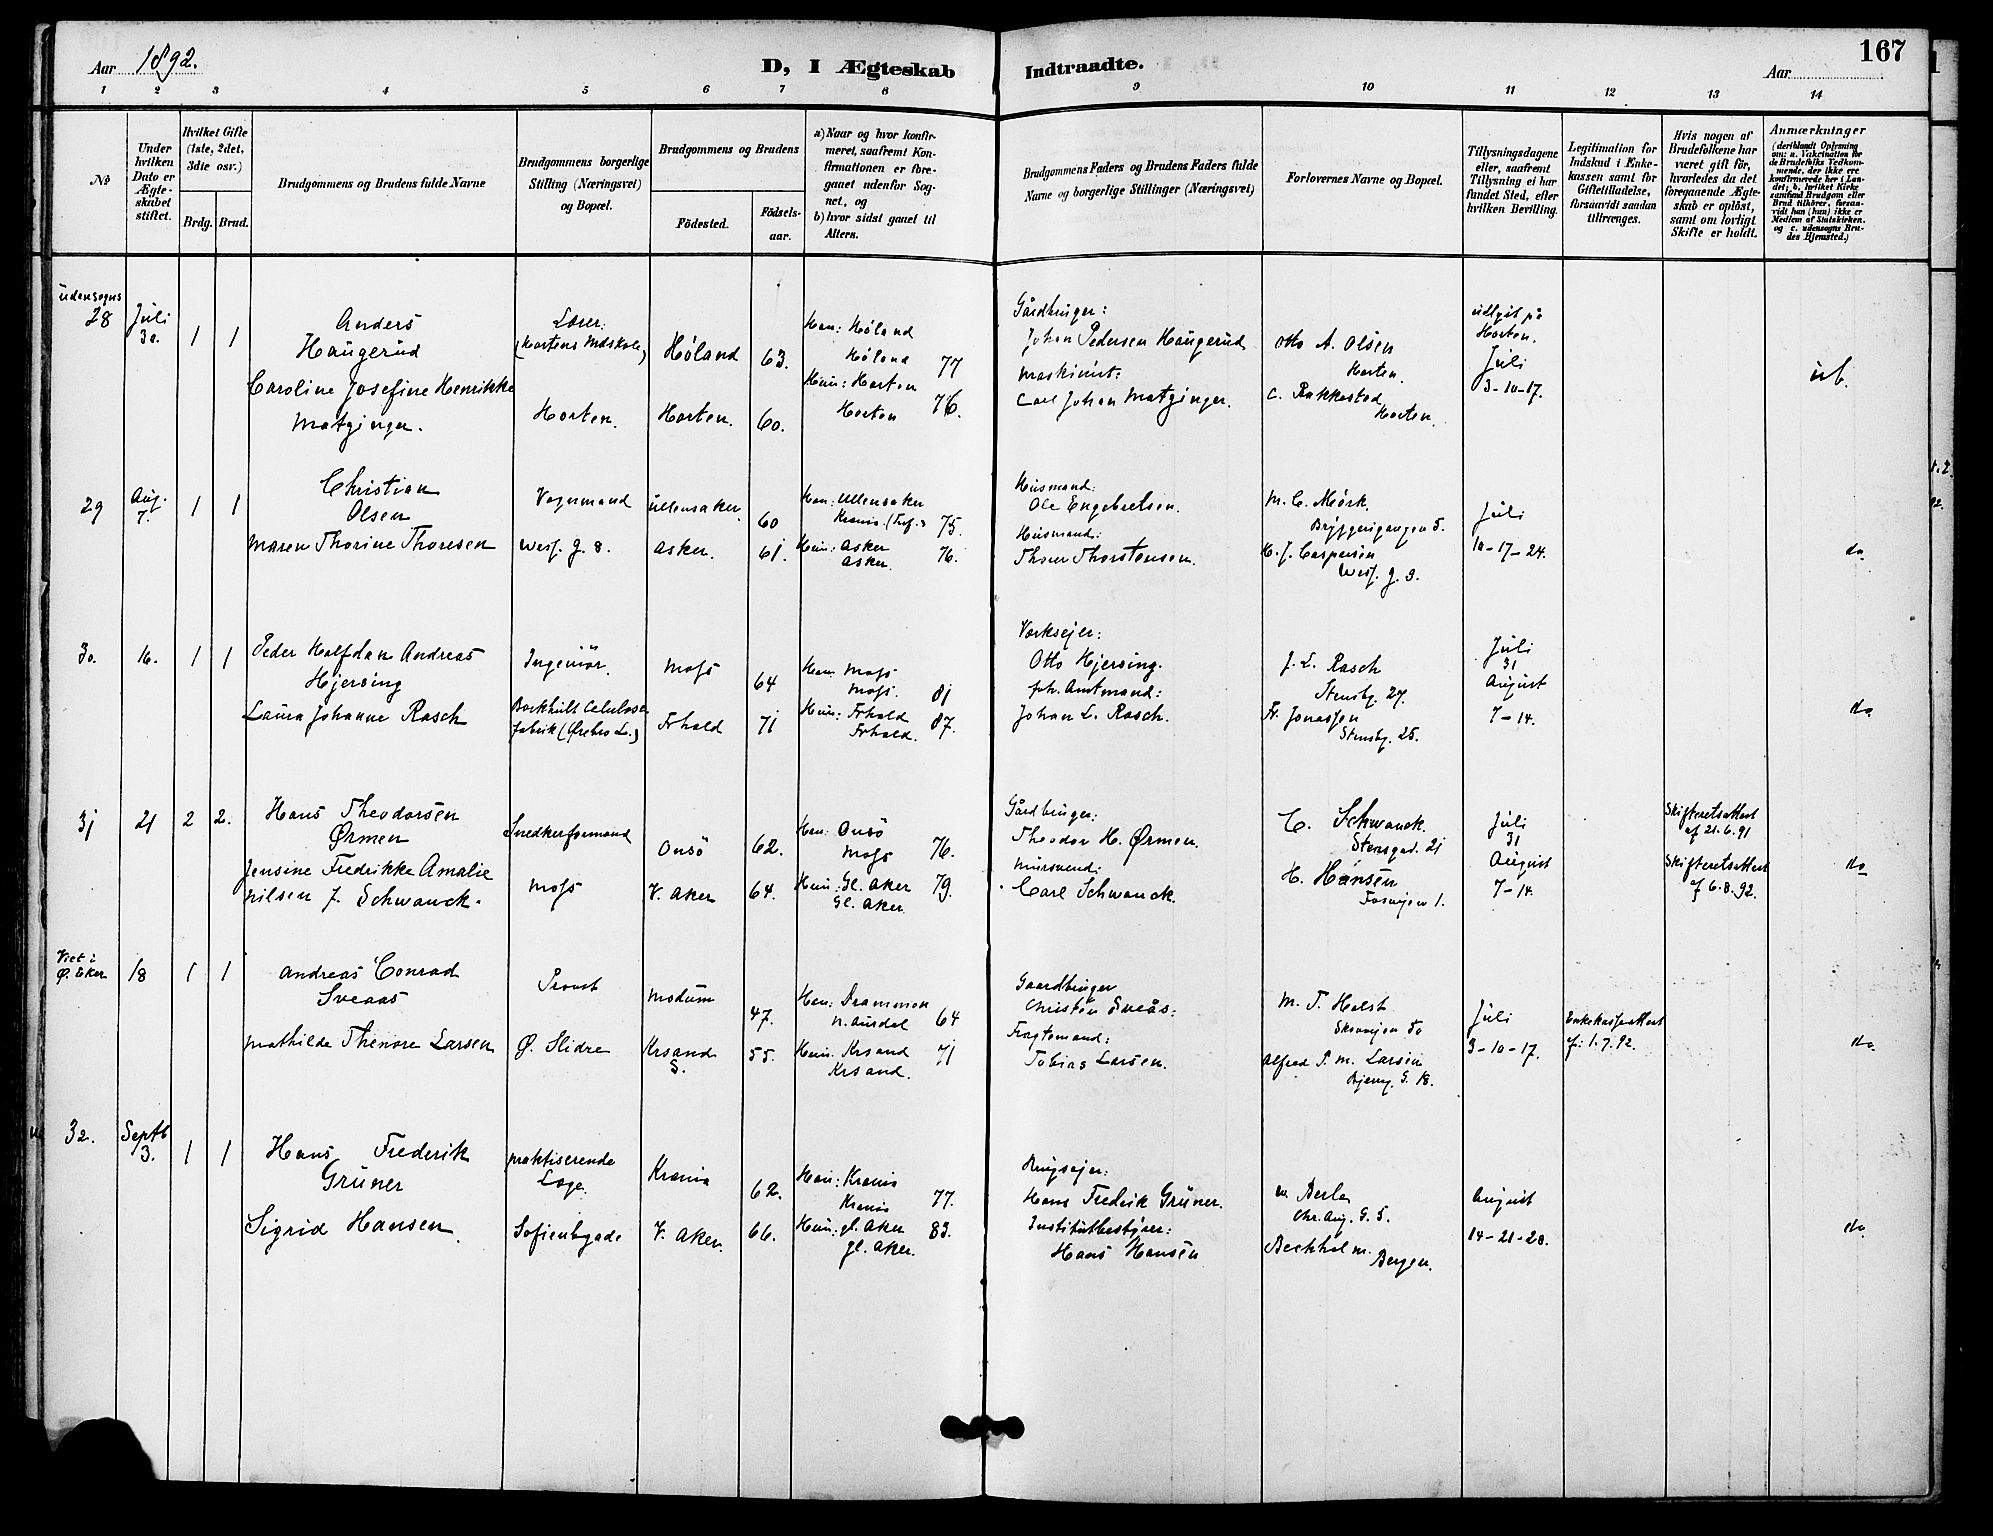 Aar 1892.
D, I Ægteskab
Indtraadte.
Aar
167
1 2 3 4 5 6 7 8 9 10 11 12 13 14
No
Under hvilken Dato er Ægteskabet stiftet.
Hvilket Gifte (1ste, 2det, 3die osv.)
Brdg. Brud.
Brudgommens og Brudens fulde Navne
Brudgommens borgerlige Stilling (Næringsvei) og Bopæl.
Brudgommens og Brudens
Födested.
Födselsaar.
a) Naar og hvor konfirmeret, saafremt Konfirmationen er foregaaet udenfor Sognet, og
b) hvor sidst gaaet til Alters.
Brudgommens Faders og Brudens Faders fulde Navne og borgerlige Stillinger (Næringsvei)
Forlovernes Navne og Bopæl.
Tillysningsdagene eller, saafremt Tillysning ei har fundet Sted, efter hvilken Bevilling.
Legitimation for Indskud i Enkekassen samt for Giftetilladelse, forsaavidt saadan tiltrænges.
Hvis nogen af Brudefolkene har været gift för, hvorledes da det foregaaende Ægteskab er oplöst, samt om lovligt Skifte er holdt.
Anmærkninger (deriblandt Oplysning om: a. Vakcination for de Brudefolks Vedkommende, der ikke ere konfirmerede her i Landet; b. hvilket Kirkesamfund Brudgom eller Brud tilhörer, forsaavidt han (hun) ikke er Medlem af Statskirken, og c. udensogns Brudes Hjemsted.)
udensogns
28
Juli
30.
1 1
Anders
Haugerud
Lærer
(Hortens Mdskole)
Høland 63.
Han: Høland
Høland 77
Gårdbruger:
Johan Pedersen Haugerud
Otto A. Olsen
Horten.
Horten.
Juli
3-10-17.
Caroline Josefine Henrikke
Matzinger.
Horten.
Horten. 60.
Hun: Horten
Horten 76.
Maskinist:
Carl Johan Matzinger.
C. Rakkestad
Horten.
29
Aug.
7.
1 1
Christian
Olsen
Vognmand
Ullensaker. 60
Han: Ullensaker
75.
Husmand:
Ole Engebretsen.
M. C. Mørk.
Bryggerigangen 5.
Juli
10-17-24.
Maren Thorine Thoresen
Wess. g. 8.
Asker. 61.
Hun: Asker
Asker. 76.
Husmand:
Thore Thorstensen.
H. J. Caspersen
Wess. g. 9.
do
30.
16.
1 1
Peder Halfdan Andreas
Hjersing
Ingeniør.
Moss 64
Han: Moss
Moss. 81
Værksejer:
Otto Hjersing.
J. L. Rasch
Stensbg. 27.
Juli
31
August
7-14.
Laura Johanne Rasch
fabrik (Ørebro L.)
Frhald 71
Hun: Frhald
Frhald. 87.
foh. Amtmand:
Johan L. Rasch.
Fr. Jonassen
Stensbg. 25.
do.
31
21
2 2.
Hans Theodorsen
Ørmen
Snedkerformand
Onsö 62.
Han: Onsö
Moss 76.
Gårdbruger:
Theodor H. Ørmen.
C. Schwanck.
Stensgad. 21
Juli
31
August
7-14.
Skifteretsattest
af 21.6.91
Jensine Fredrikke Amalie
Nilsen f. Schwanck.
Moss
V. Aker 64.
Hun: Gl. Aker
Gl. Aker. 79.
Mursvend:
Carl Schwanck.
H. Hansen
Fosvejen 1.
Skifteretsattest
af 6.8.92.
do
Viet i
Ø. Eker
18
1 1
Andreas Conrad
Sveaas
Provst
Modum 47.
Han: Drammen
N. Aurdal 64
Gaardbruger
Christen Sveås.
M. T. Holst
Skovvejen 50
Juli
3-10-17.
Enkekasseattest
af: 1.7.92.
Mathilde Thenore Larsen
Ø. Slidre
Krsand
S. 55.
Hun: Krsand
Krsand. 71
Fragtemand:
Tobias Larsen.
Alfred T. M. Larsen
Bjerreg. G. 18.
do.
32.
Septb
3.
1 1
Hans Frederik
Grüner
praktiserende
Læge.
Krania 62.
Han: Krania
Krania 77.
Brugsejer:
Hans Fredrik Grüner.
Chr. Aug. G. 5.
August
14-21-28.
Sigrid Hansen
Sofienbgade
V. Aker. 66.
Hun: gl. Aker
gl. Aker. 83.
Institutbestyrer:
Hans Hansen
Beckholm.
Bergen.
do